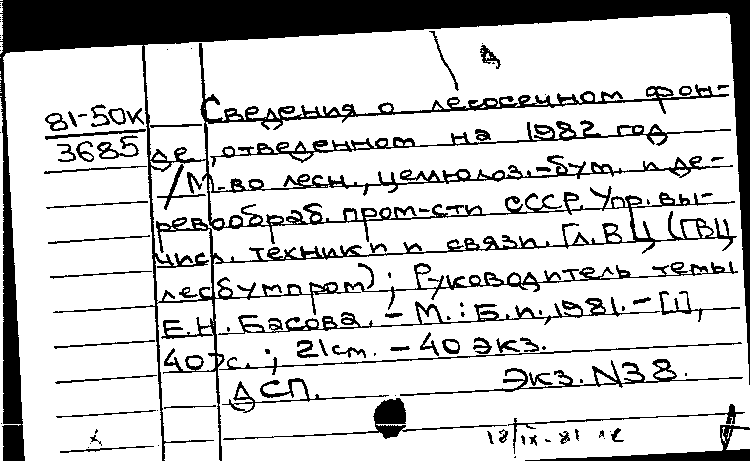 Д
81-50к
3685
Сведения о лесосечном фон-
де, отведенном на 1982 год
/М-во лесн., целлюлоз.-бум. и де-
ревообраб. пром-сти СССР. Упр. вы-
числ. техники и связи. Гл. ВЦ (ГВЦ
лесбумпром); Руководитель темы
Е.Н. Басова. - М.: Б.и., 1981. - [1],
40 с.; 21 см. - 40 экз.
ДСП. Экз. N38.
18/IX-81